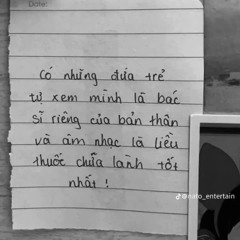 Date:
Có những đứa trẻ
tự xem mình là bác
sĩ riêng của bản thân
và âm nhạc là liều
thuốc chữa lành tốt
nhất!
@nato_entertain